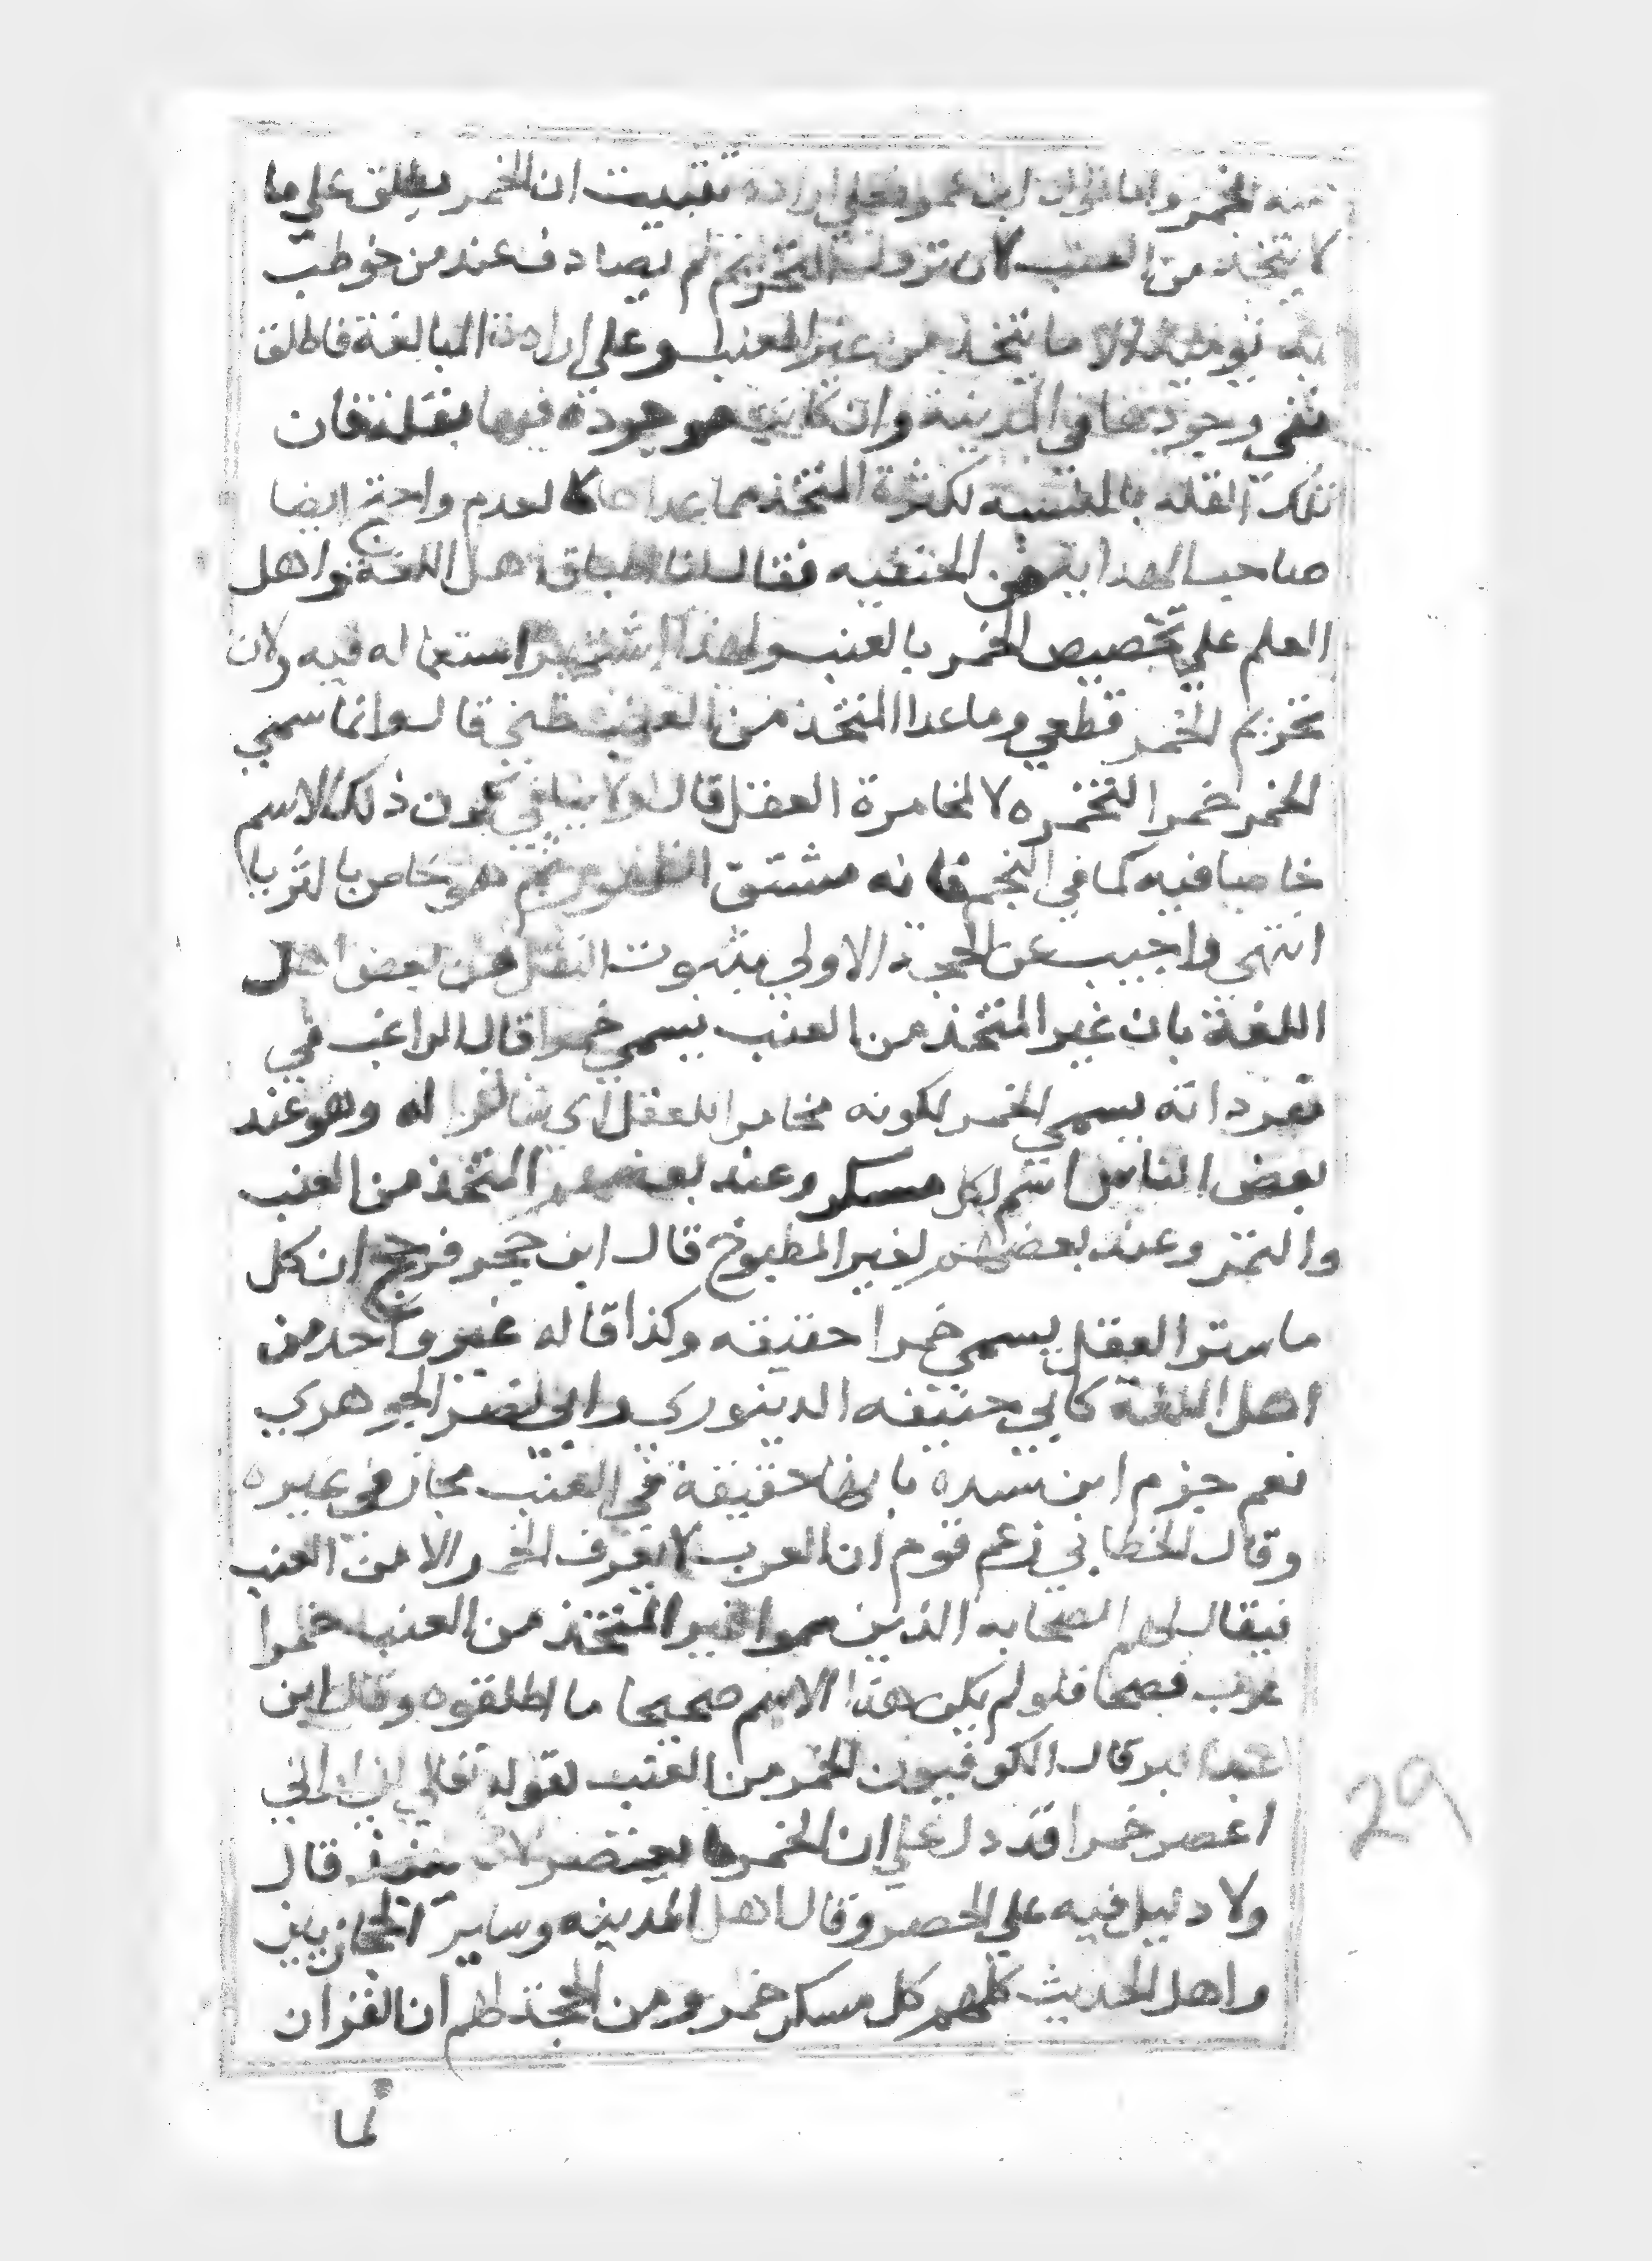 منه الخمر واما قول ابن عمر فعلي ارادة تثبيت ان الخمر يطلق علي ما
لا يتخذ من العنب لان نزول التحريم لم يصادف عند من خوطب
به يومئذ الا ما يتخذ من غير العنب وعلي ارادة المبالغة فاطلق
نفي وجودها في المدينة وان كانت موجودة فيها بقلة فان
تلك القلة بالنسبة لكثرة المتخذ مما عداها كالعدم واحتج ايضا
صاحب الهداية من الحنفيه فقال لنا اطباق اهل اللغة واهل
العلم علي تخصيص الخمر بالعنب ولهذا اشتهر استعماله فيه ولان
تحريم الخمر قطعي وما عدا المتخذ من العنب ظني قال وانما سمي
الخمر خمرا لتخمره لا لمخامرة العقل قال ولا ينافي كون ذلك الاسم
خاصا فيه كما في النجم فانه مشتق الظهور ثم هو خاص بالثريا
انتهي واجيب عن الحجة الاولي بثبوت النقل عن بعض اهل
اللغة بان غير المتخذ من العنب يسمي خمرا قال الراغب في
مفرداته يسمي الخمر لكونه مخامرا للعقل اي ساترا له وهو عند
بعض الناس اسم لكل مسكر وعند بعضهم المتخذ من العنب
والتمر وعند بعضهم لغير المطبوخ قال ابن حجر فرجح ان كل
ما ستر العقل يسمي خمرا حقيقه وكذا قاله غير واحد من
اهل اللغة كابي حنيفه الدينوري وابي نصر الجوهري
نعم جزم ابن سيده بانها حقيقة في العنب مجاز في غيره
وقال الخطابي زعم قوم ان العرب لا تعرف الخمر الا من العنب
فيقال لهم الصحابه الذين سموا غير المتخذ من العنب خمرا
عرب فصحا فلو لم يكن هذا الاسم صحيحا ما اطلقوه وقال ابن
عبد البر قال الكوفيون الخمر من العنب لقوله تعالي اني اراني
اعصر خمرا قد دل علي ان الخمر ما يعتصر لا ما ينبذ قال
ولا دليل فيه علي الحصر وقال اهل المدينه وساير الحجازيين
واهل الحديث كلهم كل مسكر خمر ومن الحجة لهم ان القران
لما
29